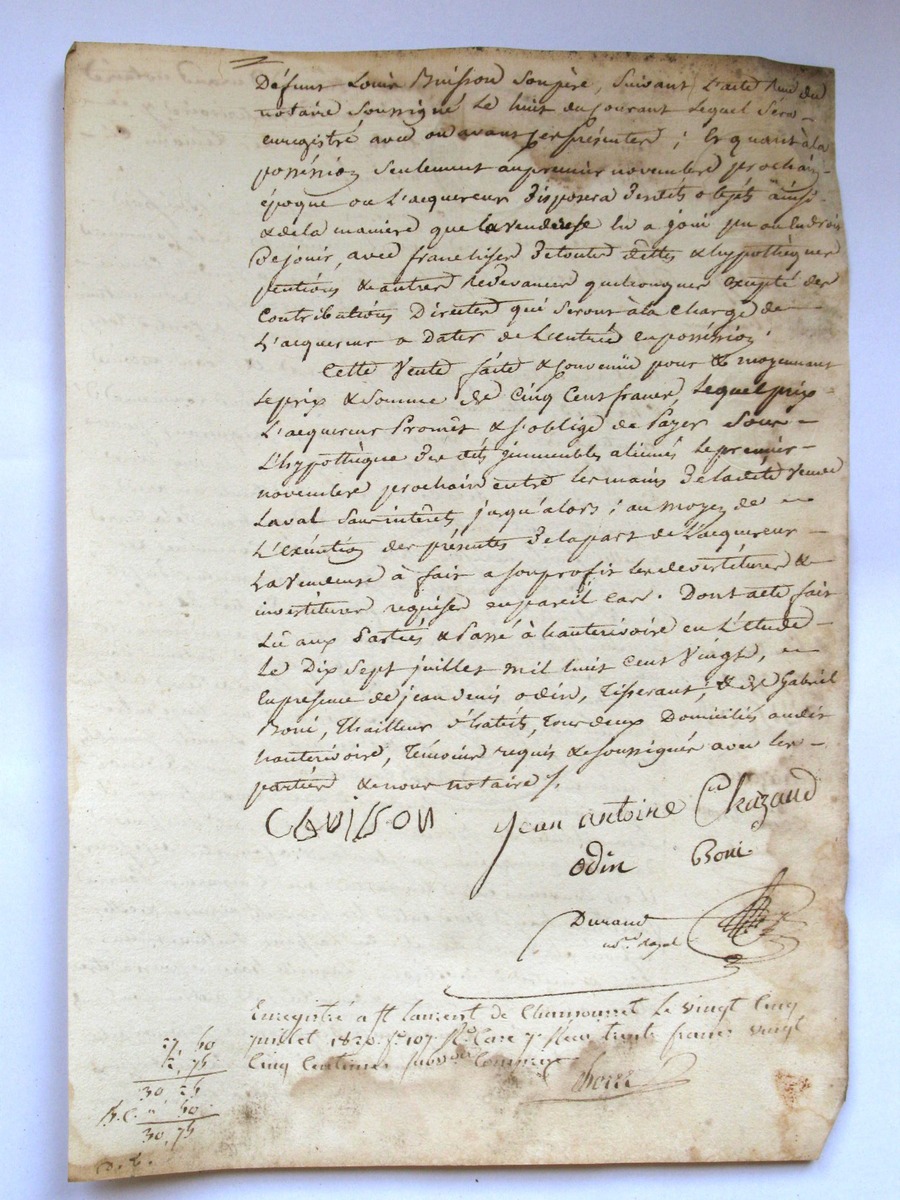 Défunt Louis Buisson son père, suivant L'acte Reçu du
notaire Soussigné Le huit du Courant Lequel Sera
enregistré avec ou avant ces présentes ; Et quant à la
possession Seulement au premier novembre prochain,
époque ou L'acquereur Disposera Desdits objets ainsi
& de la maniere que la vendeuse en a joui pu ou du Droit
De jouir, avec franchises De toutes dettes & hypothèques
pentions & autres Redevances quelconques Excepté des
Contributions Directes qui Seront à la Charge de
L'acquereur a Dater de L'entrée en possession.
Cette Vente faite & Convenüe pour & moyennant
Le prix & Somme de Cinq Cent francs, Lequel prix
L'acquereur Promêt & s'oblige de Payer Sous
L'hypothèque Des dits immeubles aliénés Le premier
novembre prochain entre les mains De la dite Veuve
Laval Sans intérêts jusqu'alors ; au moyen de
L'exécution des présentes De la part de L'acquereur
La Vendeuse à fait a son profit les devestitures &
investitures requises en pareil cas. Dont acte fait
Lû aux Parties & Passé à hauterivoire en L'étude
Le Dix Sept juillet mil huit Cent Vingt, en
En presence de jean denis odin, Tisserant, & de Gabriel
Boni, Thailleur d'habits, Tous deux Domiciliés audit
hauterivoire, Témoins requis & Soussignés avec les
parties & nous notaire
Jean antoine Chazaud
odin Boni
Durand
no.re Royal
Enregistré a St Laurent de Chamousset Le vingt Cinq
juillet 1820 f° 107 R° Case 7 Reçu trente francs vingt
Cinq Centimes Subv.on Comprise
27, 50
2, 75
30, 25
" 50
30, 75